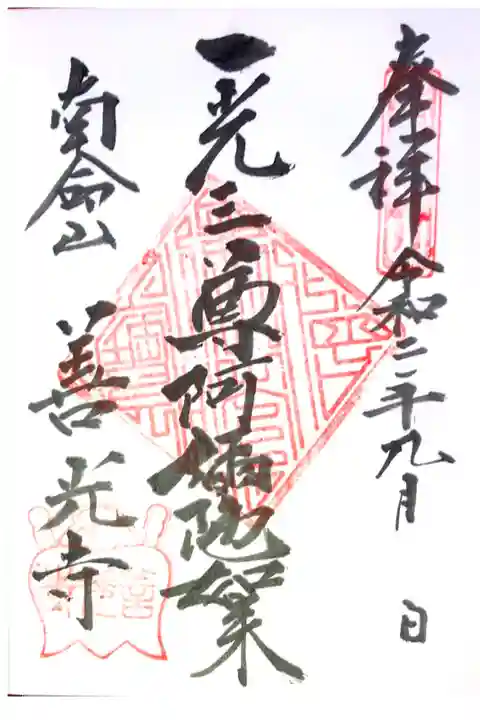 奉拝 令和二年九月 日
一光三尊阿彌陀如来
南命山 善光寺